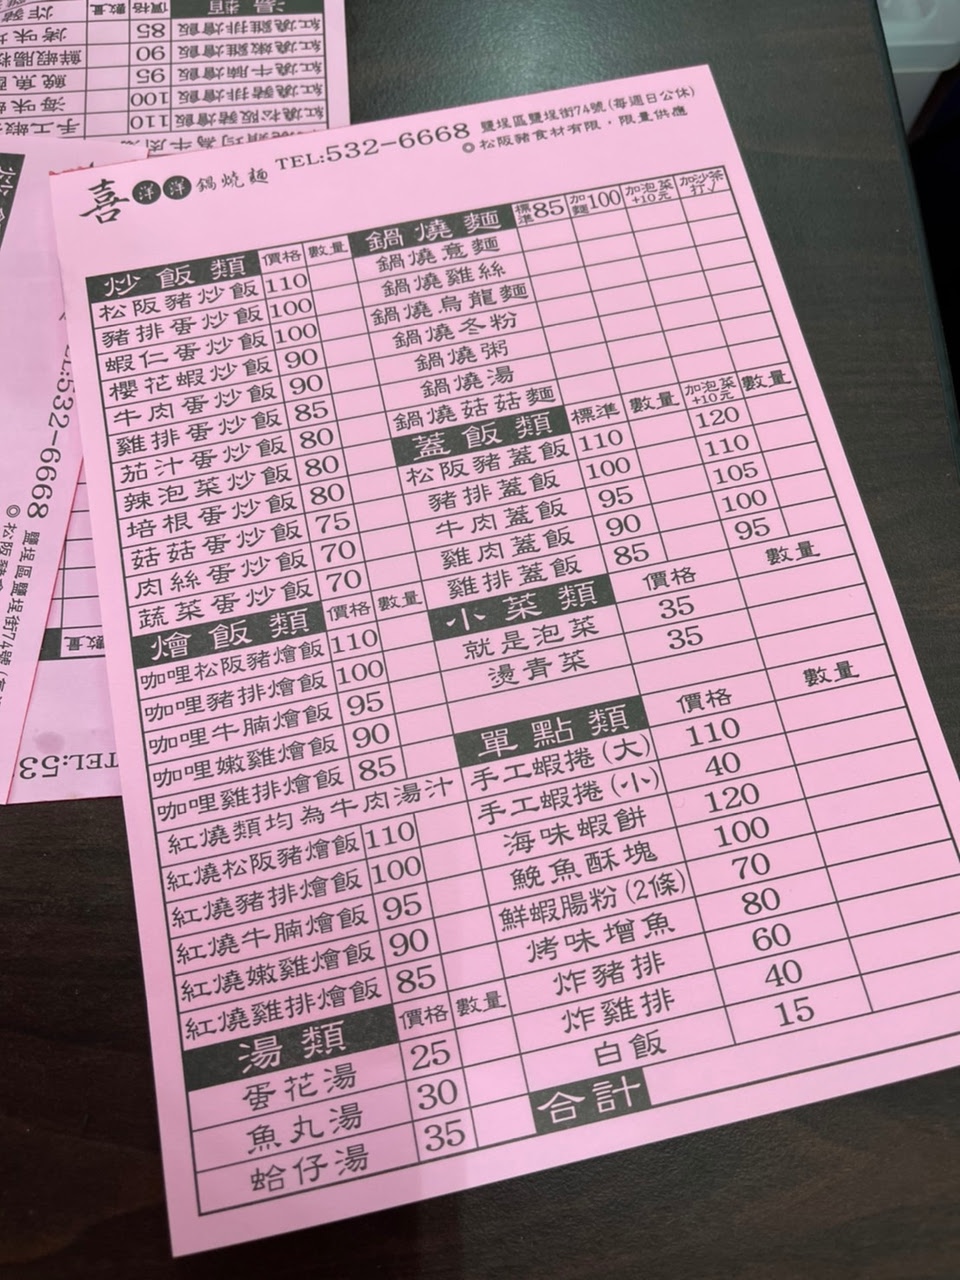 喜洋洋鍋燒麵 TEL:532-6668 鹽埕區鹽埕街74號(每週日公休)
◎松阪豬食材有限,限量供應
炒飯類 價格 數量
松阪豬炒飯 110
豬排蛋炒飯 100
蝦仁蛋炒飯 100
櫻花蝦炒飯 90
牛肉蛋炒飯 90
雞排蛋炒飯 85
茄汁蛋炒飯 80
辣泡菜炒飯 80
培根蛋炒飯 80
菇菇蛋炒飯 75
肉絲蛋炒飯 70
蔬菜蛋炒飯 70
燴飯類 價格 數量
咖哩松阪豬燴飯 110
咖哩豬排燴飯 100
咖哩牛腩燴飯 95
咖哩嫩雞燴飯 90
咖哩雞排燴飯 85
紅燒類均為牛肉湯汁
紅燒松阪豬燴飯 110
紅燒豬排燴飯 100
紅燒牛腩燴飯 95
紅燒嫩雞燴飯 90
紅燒雞排燴飯 85
湯類 價格 數量
蛋花湯 25
魚丸湯 30
蛤仔湯 35
鍋燒麵 標準85 加麵100 加泡菜+10元 加沙茶打✓
鍋燒意麵
鍋燒雞絲
鍋燒烏龍麵
鍋燒冬粉
鍋燒粥
鍋燒湯
鍋燒菇菇麵
蓋飯類 標準 數量 加泡菜+10元 數量
松阪豬蓋飯 110 120
豬排蓋飯 100 110
牛肉蓋飯 95 105
雞肉蓋飯 90 100
雞排蓋飯 85 95
小菜類 價格 數量
就是泡菜 35
燙青菜 35
單點類 價格 數量
手工蝦捲(大) 110
手工蝦捲(小) 40
海味蝦餅 120
鮸魚酥塊 100
鮮蝦腸粉(2條) 70
烤味增魚 80
炸豬排 60
炸雞排 40
白飯 15
合計
湯類 價格 數量
紅燒雞排燴飯 85
紅燒嫩雞燴飯 90
紅燒牛腩燴飯 95
紅燒豬排燴飯 100
紅燒松阪豬燴飯 110
532-6668 鹽埕區鹽埕街74號
數量
TEL:53